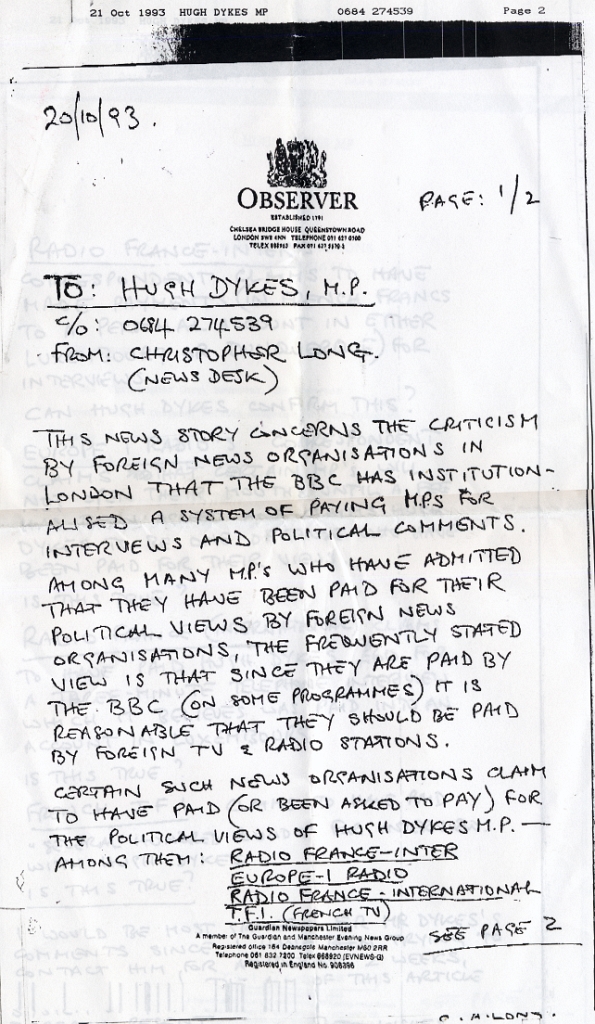 21 Oct 1993 HUGH DYKES MP 0684 274539 Page 2
20/10/93.
OBSERVER
ESTABLISHED 1791
PAGE: 1/2
CHELSEA BRIDGE HOUSE QUEENSTOWN ROAD
LONDON SW8 4NN TELEPHONE 071 627 0700
TO: HUGH DYKES, M.P.
C/O: 0684 274539
FROM: CHRISTOPHER LONG.
(NEWS DESK)
THIS NEWS STORY CONCERNS THE CRITICISM
BY FOREIGN NEWS ORGANISATIONS IN
LONDON THAT THE BBC HAS INSTITUTION-
ALISED A SYSTEM OF PAYING M.P.S FOR
INTERVIEWS AND POLITICAL COMMENTS.
AMONG MANY M.P.'s WHO HAVE ADMITTED
THAT THEY HAVE BEEN PAID FOR THEIR
POLITICAL VIEWS BY FOREIGN NEWS
ORGANISATIONS, THE FREQUENTLY STATED
VIEW IS THAT SINCE THEY ARE PAID BY
THE BBC (ON SOME PROGRAMMES) IT IS
REASONABLE THAT THEY SHOULD BE PAID
BY FOREIGN TV & RADIO STATIONS.
CERTAIN SUCH NEWS ORGANISATIONS CLAIM
TO HAVE PAID (OR BEEN ASKED TO PAY) FOR
THE POLITICAL VIEWS OF HUGH DYKES M.P. —
AMONG THEM: RADIO FRANCE-INTER
EUROPE-1 RADIO
RADIO FRANCE-INTERNATIONAL
T.F.1. (FRENCH TV)
Guardian Newspapers Limited
A member of The Guardian and Manchester Evening News Group
Registered office 164 Deansgate Manchester M60 2RR
Telephone 061 832 7200 Telex 668920 (EVNEWS-G)
Registered in England No. 908396
SEE PAGE 2
C. A. LONG.